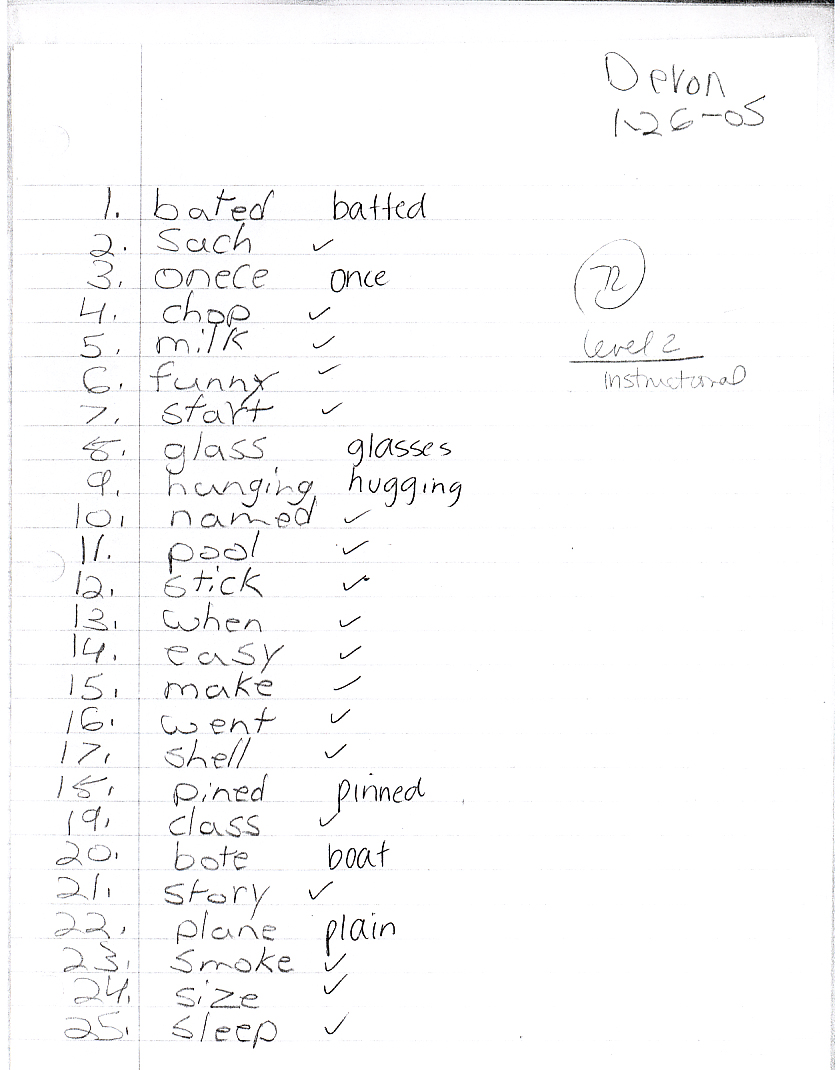 Devon
1-26-05
1. bated batted
2. Such ✓
3. onece once
4. chop ✓
5. milk ✓
6. funny ✓
7. start ✓
8. glass glasses
9. hunging hugging
10. named ✓
11. pool ✓
12. stick ✓
13. when ✓
14. easy ✓
15. make ✓
16. went ✓
17. shell ✓
18. pined pinned
19. class ✓
20. bote boat
21. story ✓
22. plane plain
23. smoke ✓
24. size ✓
25. sleep ✓
72
level 2
instructional